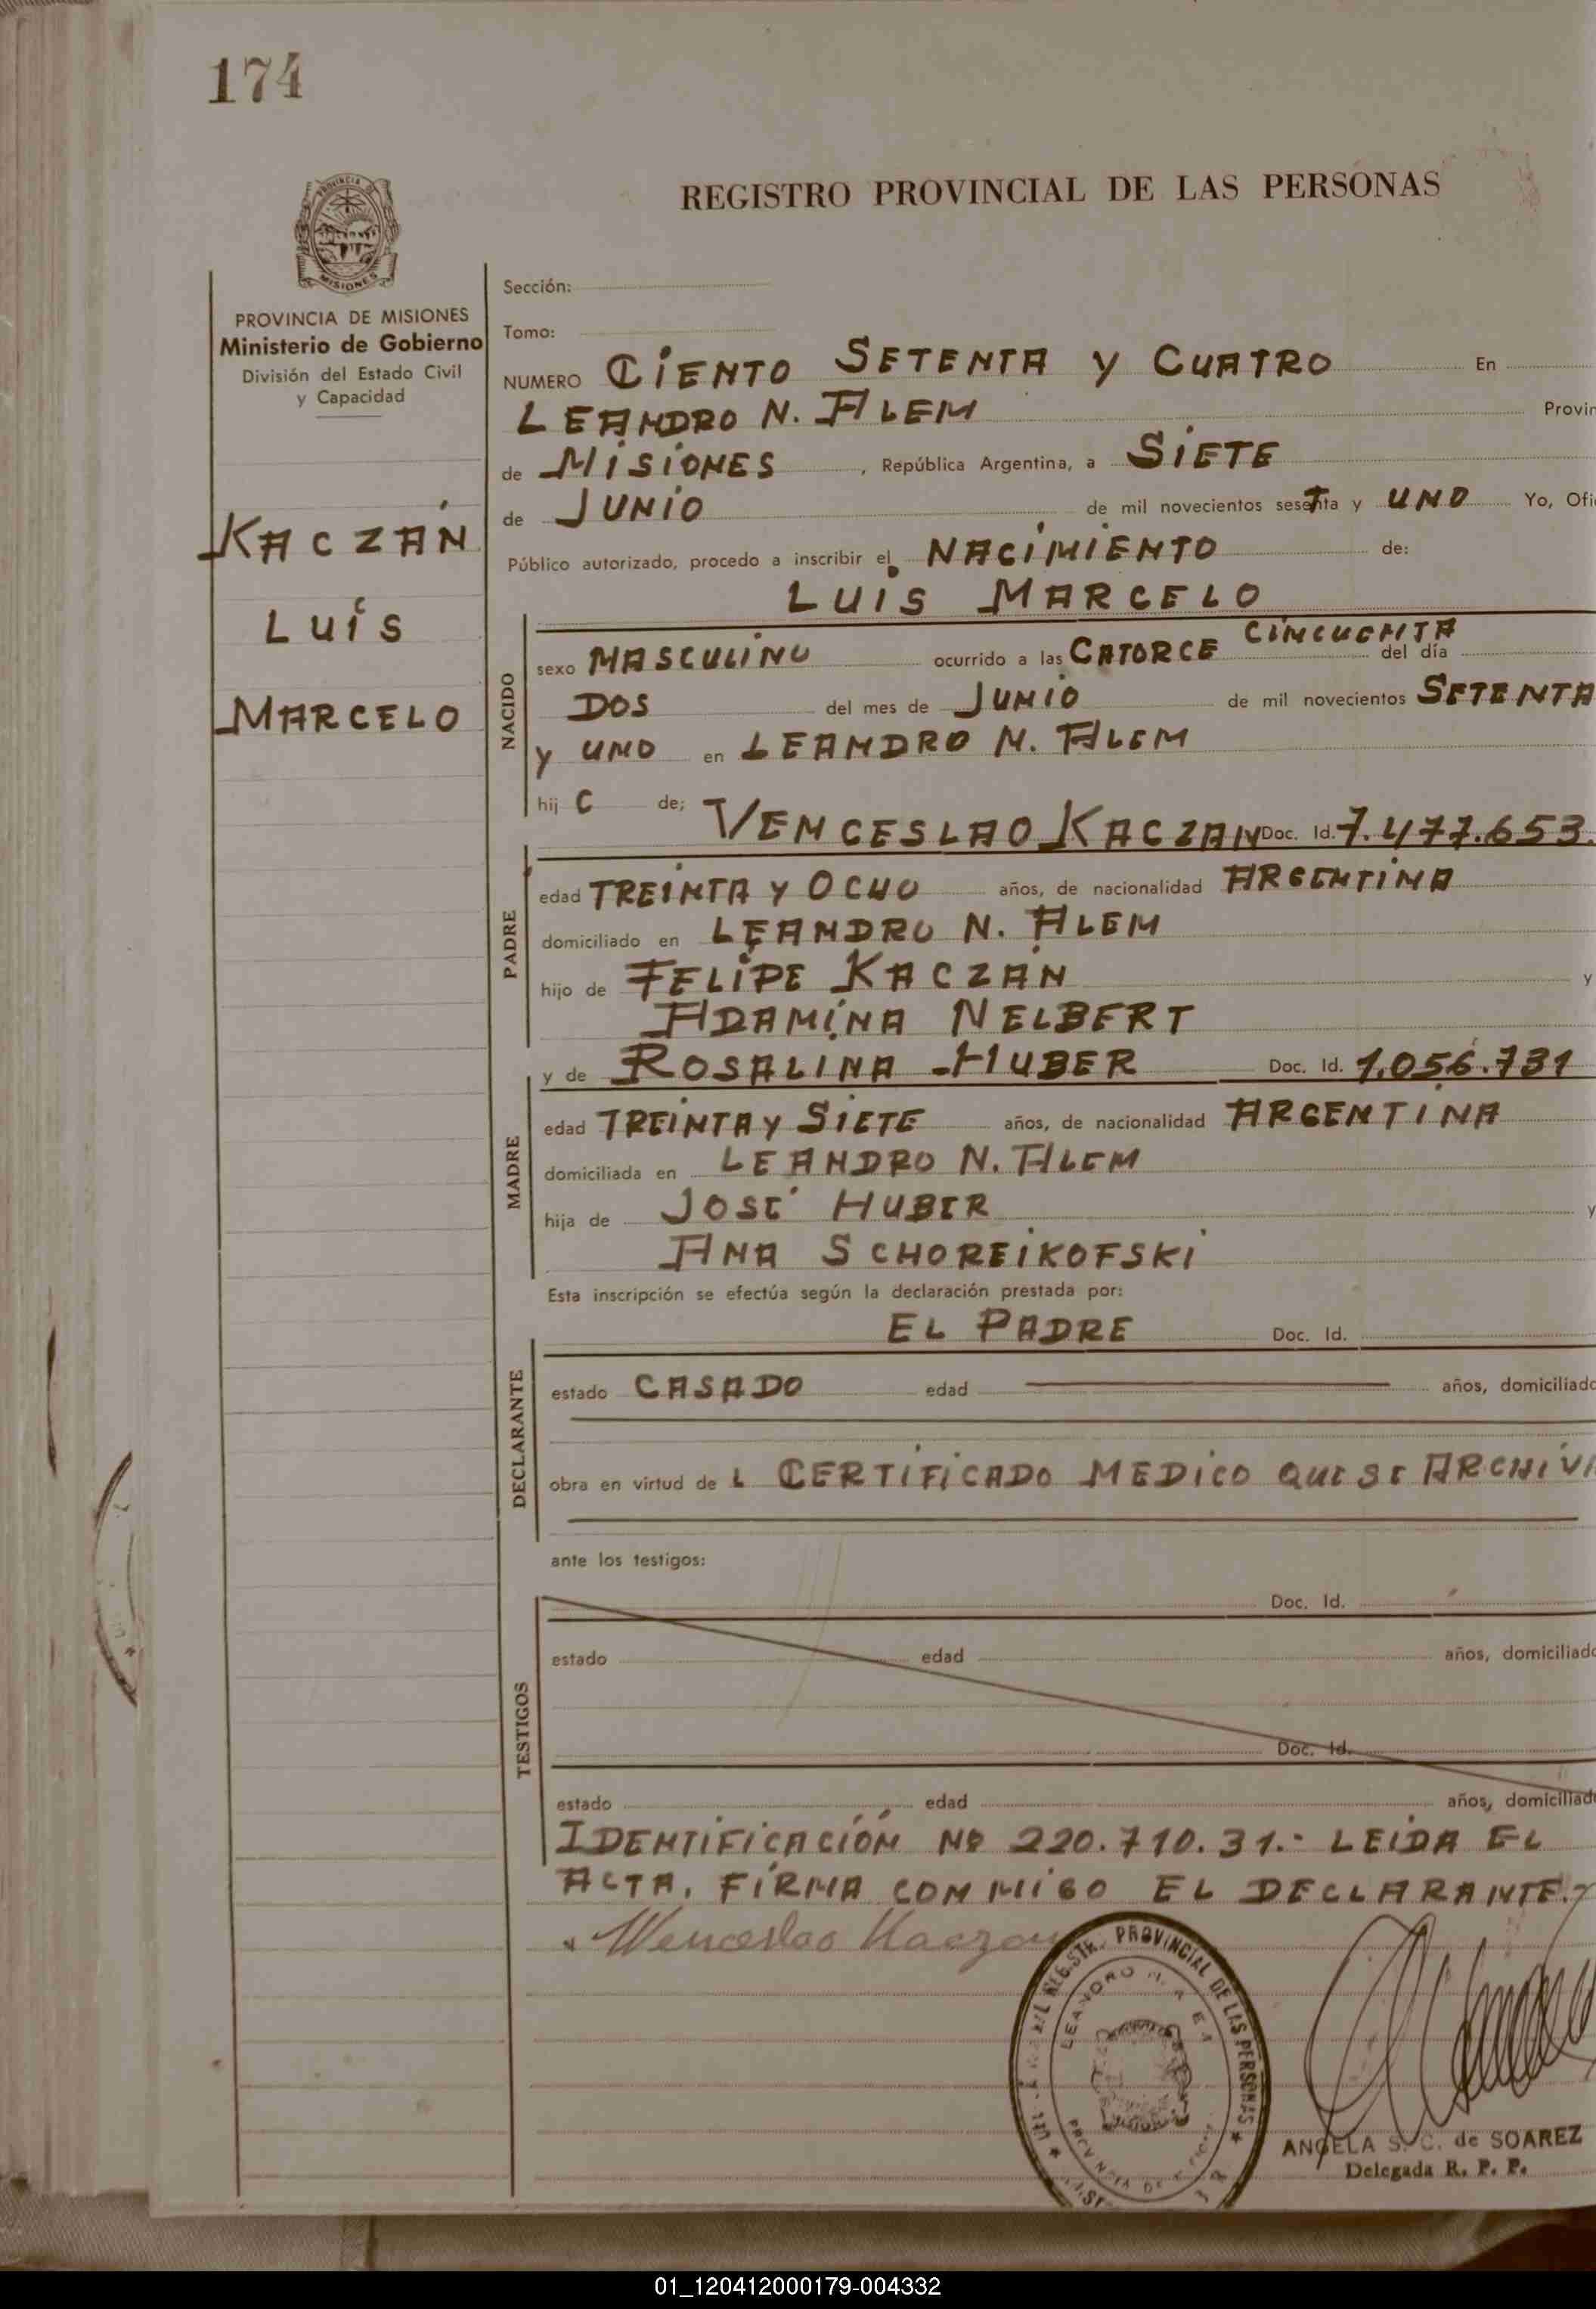 174
PROVINCIA DE MISIONES
REGISTRO PROVINCIAL DE LAS PERSONAS
PROVINCIA DE MISIONES
Ministerio de Gobierno
División del Estado Civil
y Capacidad
KACZÁN
LUÍS
MARCELO
Sección:
Tomo:
NUMERO CIENTO SETENTA Y CUATRO En
LEANDRO N. ALEM Provin
de MISIONES , República Argentina, a SIETE
de JUNIO de mil novecientos setenta y UNO Yo, Ofi
Público autorizado, procedo a inscribir el NACIMIENTO de:
LUIS MARCELO
NACIDO
sexo MASCULINO ocurrido a las CATORCE CINCUENTA del día
DOS del mes de JUNIO de mil novecientos SETENTA
y UNO en LEANDRO N. ALEM
hij O de; VENCESLAO KACZAN Doc. Id. 7.477.653.
PADRE
edad TREINTA Y OCHO años, de nacionalidad ARGENTINA
domiciliado en LEANDRO N. ALEM
hijo de FELIPE KACZÁN y
ADAMINA NELBERT
y de ROSALINA HUBER Doc. Id. 1.056.731
MADRE
edad TREINTA Y SIETE años, de nacionalidad ARGENTINA
domiciliada en LEANDRO N. ALEM
hija de JOSÉ HUBER y
ANA SCHOREIKOFSKI
Esta inscripción se efectúa según la declaración prestada por:
EL PADRE Doc. Id.
DECLARANTE
estado CASADO edad años, domiciliado
obra en virtud de L CERTIFICADO MEDICO QUE SE ARCHIVA
ante los testigos:
TESTIGOS
Doc. Id.
estado edad años, domiciliado
Doc. Id.
estado edad años, domiciliado
IDENTIFICACIÓN Nº 220.710.31.- LEIDA EL
ACTA, FIRMA CONMIGO EL DECLARANTE.-
Wenceslao Kaczan
REGISTR. PROVINCIAL DE LAS PERSONAS
LEANDRO N. ALEM
PROVINCIA DE
ANGELA S. C. de SOAREZ
Delegada R. P. P.
01_120412000179-004332